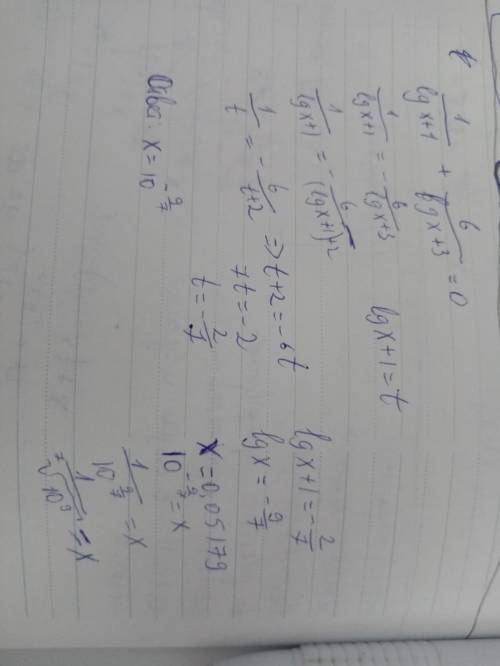 1/(lg x+1) + 6/(lg x+3) = 0
1/(lg x+1) = - 6/(lg x+3)
lg x+1 = t
1/(lg x+1) = - 6/((lg x+1)+2)
1/t = - 6/(t+2) => t+2 = -6t
7t = -2
t = - 2/7
lg x+1 = - 2/7
lg x = - 9/7
x = 0,05179
10^(-9/7) = x
1/10^(9/7) = x
1/⁷√(10⁹) = x
Ответ: x = 10^(-9/7)